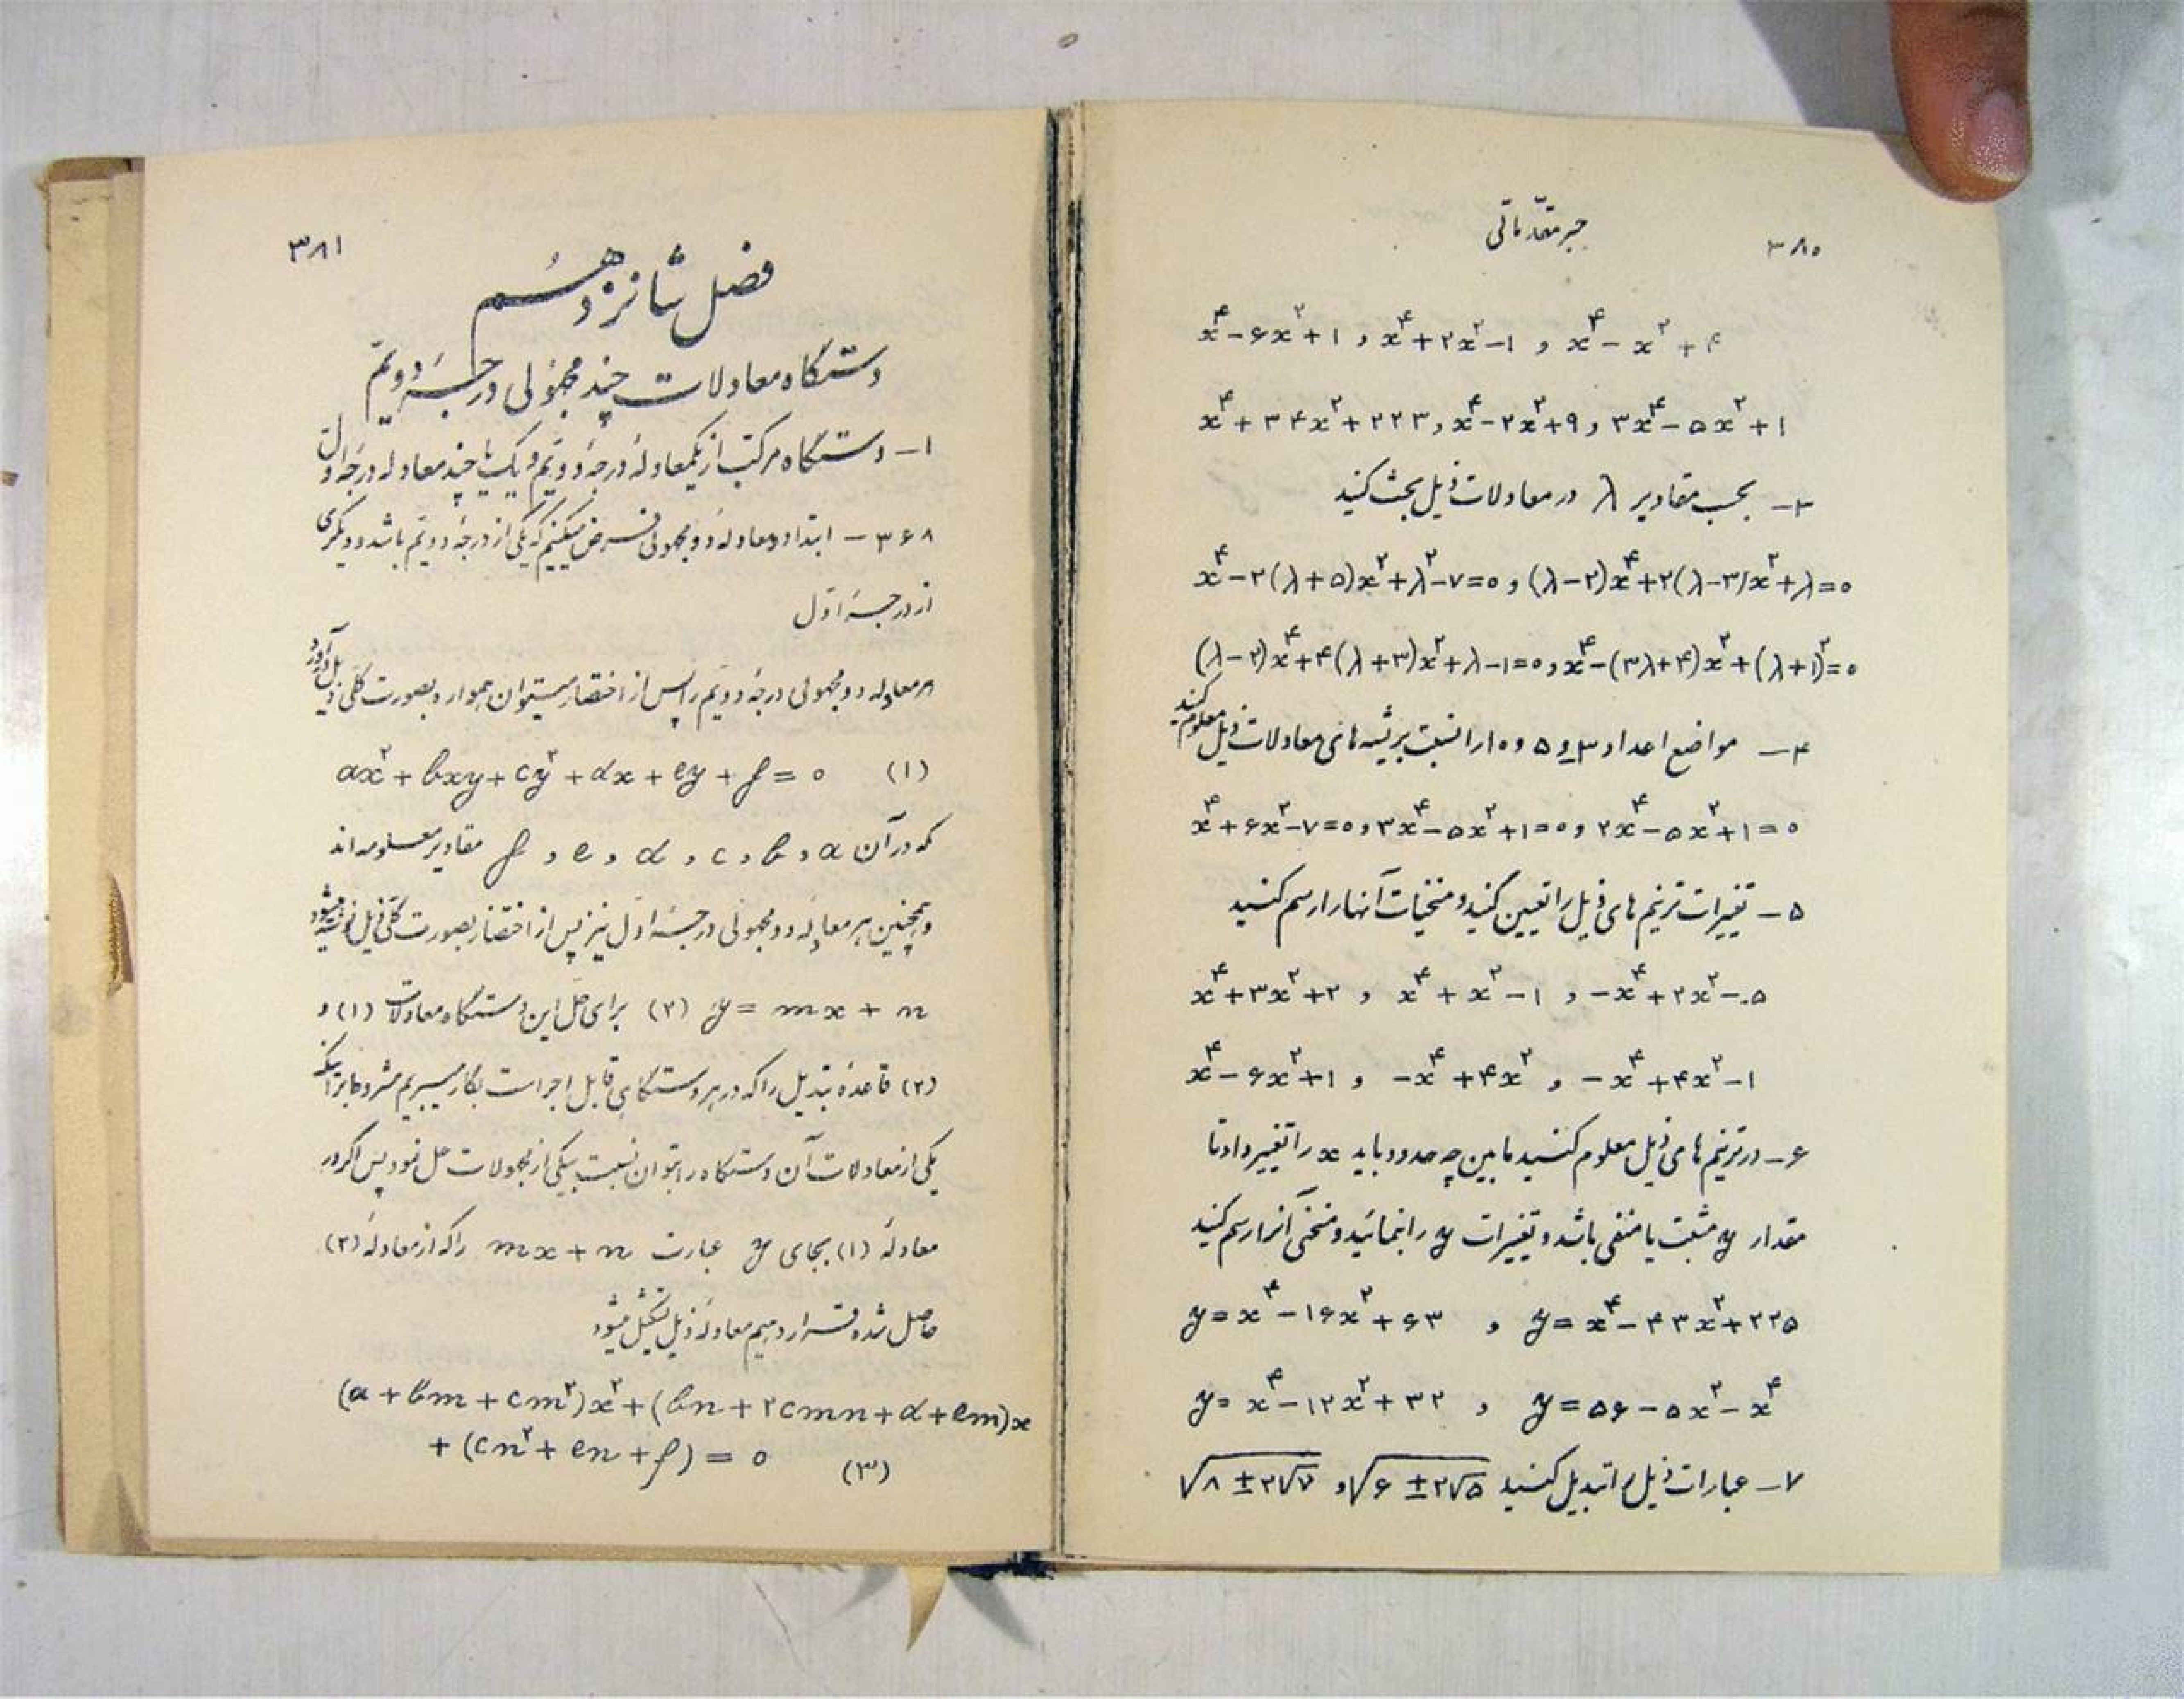 ۳۸۰ جبر مقدّماتی
x⁴−۶x²+۱ , x⁴+۲x²−۱ , x⁴−x²+۴
x⁴+۳۴x²+۲۲۳ , x⁴−۲x²+۹ , ۳x⁴−۵x²+۱
۳− بحسب مقادیر λ در معادلات ذیل بحث کنید
x⁴−۲(λ+۵)x²+λ²−۷=۰ , (λ−۲)x⁴+۲(λ−۳)x²+λ=۰
(λ−۲)x⁴+۴(λ+۳)x²+λ−۱=۰ , x⁴−(۳λ+۴)x²+(λ+۱)²=۰
۴− مواضع اعداد ۳ و ۵ و ۱۰ را نسبت بریشه های معادلات ذیل معلوم کنید
x⁴+۶x²−۷=۰ , ۳x⁴−۵x²+۱=۰ , ۲x⁴−۵x²+۱=۰
۵− تغییرات ترنیم های ذیل را تعیین کنید و منحنیات آنها را رسم کنید
x⁴+۳x²+۲ , x⁴+x²−۱ , −x⁴+۲x²−.۵
x⁴−۶x²+۱ , −x⁴+۴x² , −x⁴+۴x²−۱
۶− در ترنیم های ذیل معلوم کنید مابین چه حدود باید x را تغییر داد تا
مقدار y مثبت یا منفی باشد و تغییرات y را بنمائید و منحنی آنرا رسم کنید
y=x⁴−۱۶x²+۶۳ , y=x⁴−۴۳x²+۲۲۵
y=x⁴−۱۲x²+۳۲ , y=۵۶−۵x²−x⁴
۷− عبارات ذیل را تبدیل کنید √(۶±۲√۵) , √(۸±۲√۷)
۳۸۱
فصل شانزدهم
دستگاه معادلات چند مجهولی درجهٔ دویّم
۱− دستگاه مرکّب از یکمعادلهٔ درجهٔ دویّم و یک یا چند معادله درجهٔ اوّل
۳۶۸− ابتدا دو معادلهٔ دو مجهولی فرض میکنیم که یکی از درجهٔ دویّم باشد و دیگری
از درجهٔ اوّل
هر معادله دو مجهولی درجهٔ دویّم را پس از اختصار میتوان همواره بصورت کلّی ذیل درآورد
ax²+bxy+cy²+dx+ey+f=۰ (۱)
که در آن a , b , c , d , e , f مقادیر معلومه اند
و همچنین هر معادلهٔ دو مجهولی درجهٔ اوّل نیز پس از اختصار بصورت کلّی ذیل نوشته میشود
y=mx+n (۲) برای حلّ این دستگاه معادلات (۱) و
(۲) قاعدهٔ تبدیل را که در هر دستگاهی قابل اجراست بکار میبریم مشروط بر اینکه
یکی از معادلات آن دستگاه را بتوان نسبت بیکی از مجهولات حل نمود پس اگر در
معادلهٔ (۱) بجای y عبارت mx+n را که از معادلهٔ (۲)
حاصل شده قرار دهیم معادلهٔ ذیل تشکیل میشود
(a+bm+cm²)x²+(bn+۲cmn+d+em)x
+(cn²+en+f)=۰ (۳)